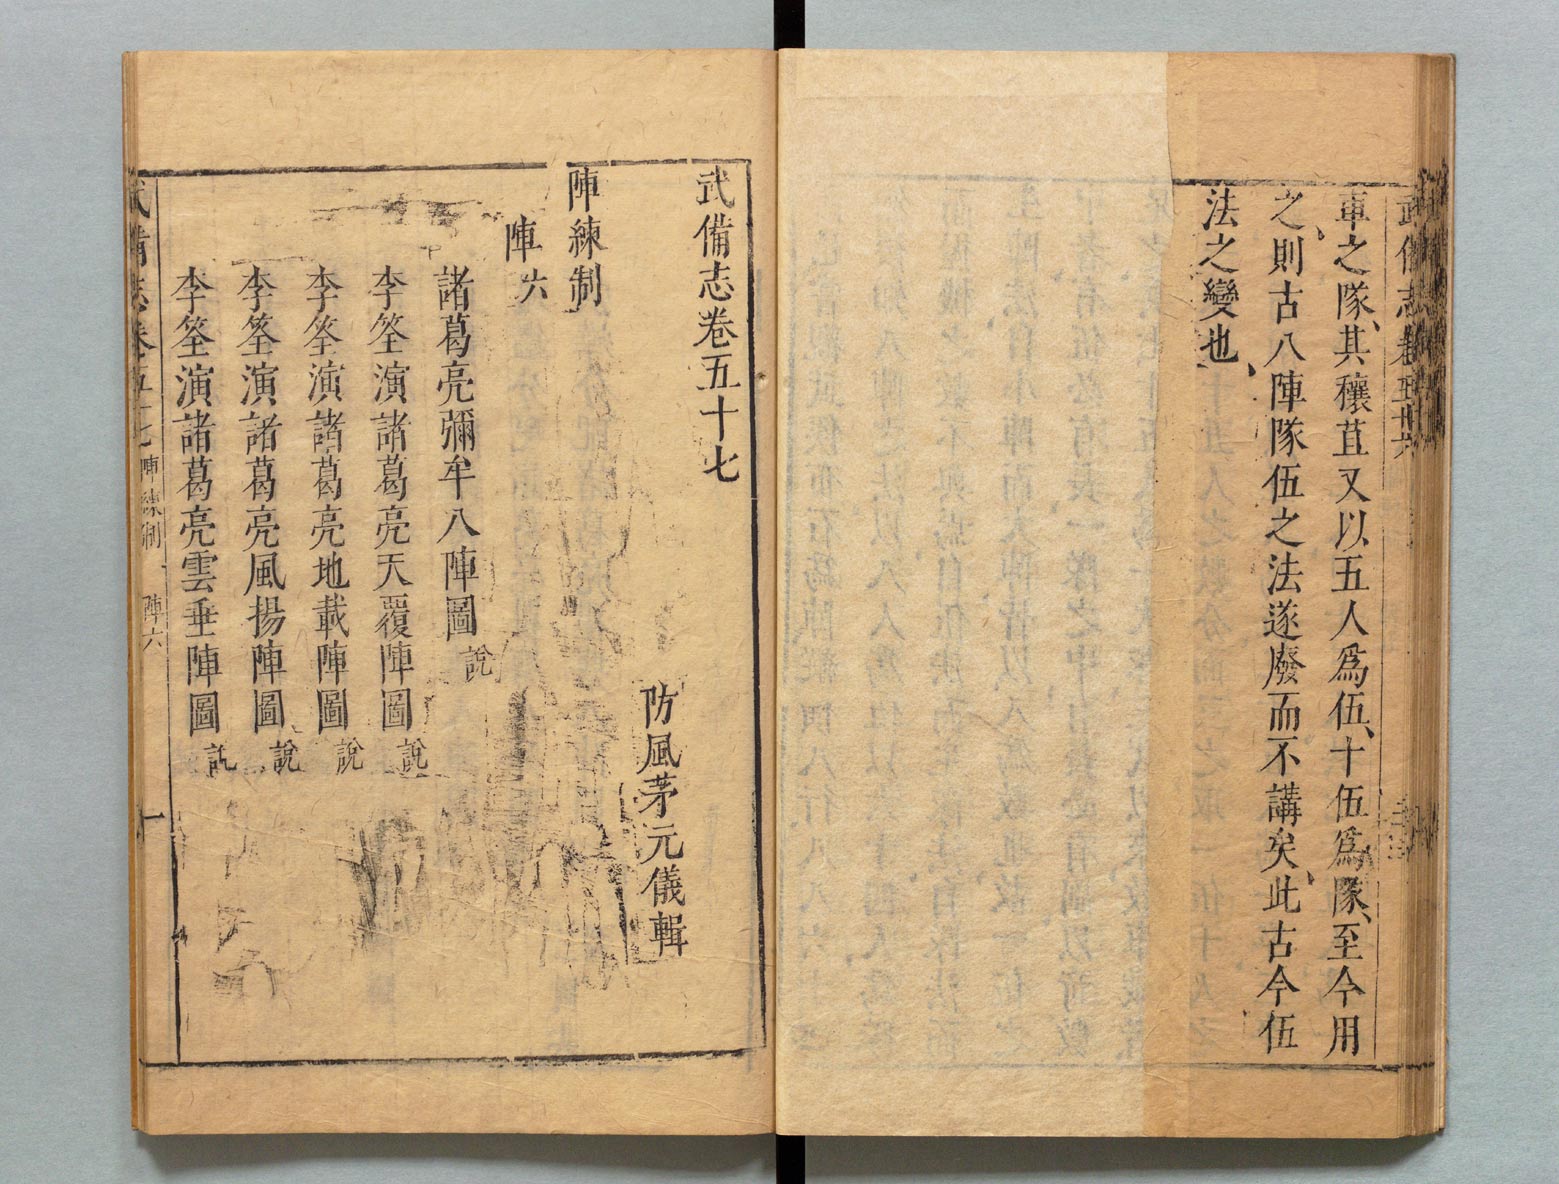 武備志卷五十六
車之隊、其穰苴又以五人爲伍、十伍爲隊、至今用
之、則古八陣隊伍之法遂廢而不講矣、此古今伍
法之變也、
武備志卷五十七
防風茅元儀輯
陣練制
陣六
諸葛亮彌牟八陣圖說
李筌演諸葛亮天覆陣圖說
李筌演諸葛亮地載陣圖說
李筌演諸葛亮風揚陣圖說
李筌演諸葛亮雲垂陣圖說
武備志卷五十七 陣練制 陣六 一